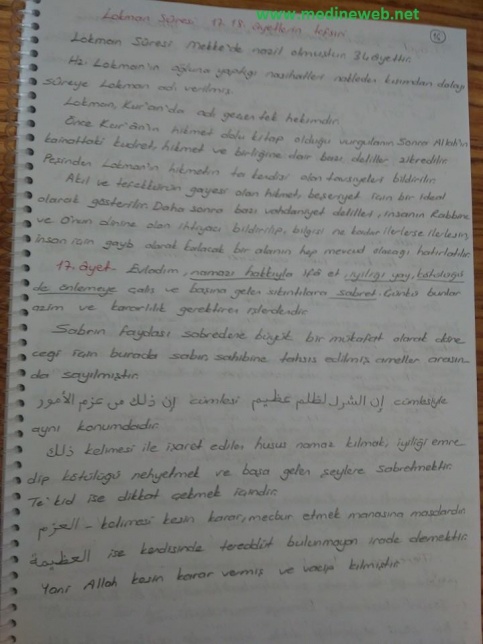 www.medineweb.net
Lokman Sûresi 17. 18. âyetlerin tefsiri
Lokman Sûresi Mekke'de nazil olmuştur. 34 âyettir.
Hz. Lokman'ın oğluna yaptığı nasihatleri nakleden kısımdan dolayı
sûreye Lokman adı verilmiş.
Lokman, Kur'an'da adı geçen tek hekimdir.
Önce Kur'ân'ın hikmet dolu kitap olduğu vurgulanır. Sonra Allah'ın
kainattaki kudret, hikmet ve birliğine dair bazı deliller zikredilir.
Peşinden Lokman'ın hikmetin ta kendisi olan tavsiyeleri bildirilir.
Akıl ve tefekkürün gayesi olan hikmet, beşeriyet için bir ideal
olarak gösterilir. Daha sonra bazı vahdaniyet delilleri, insanın Rabbine
ve O'nun dinine olan ihtiyacı bildirilip, bilgisi ne kadar ilerlerse ilerlesin,
insan için gayb olarak kalacak bir alanın hep mevcut olacağı hatırlatılır.
17. âyet - Evladım, namazı hakkıyla ifâ et, iyiliği yay, kötülüğü
de önlemeye çalış ve başına gelen sıkıntılara sabret. Çünkü bunlar
azim ve kararlılık gerektiren işlerdendir.
Sabrın faydası sabredene büyük bir mükafat olarak
için burada sabır, sahibine tahsis edilmiş ameller arasın-
da sayılmıştır.
إن ذلك من عزم الأمور cümlesi إن الشرك لظلم عظيم cümlesiyle
aynı konumdadır.
ذلك kelimesi ile işaret edilen husus namaz kılmak, iyiliği emre
dip kötülüğü nehyetmek ve başa gelen şeylere sabretmektir.
Te'kid ise dikkat çekmek içindir.
العزم - kelimesi kesin karar, mecbur etmek manasına masdardır.
العظيمة ise kendisinde tereddüt bulunmayan irade demektir.
Yani Allah kesin karar vermiş ve vacip kılmıştır.